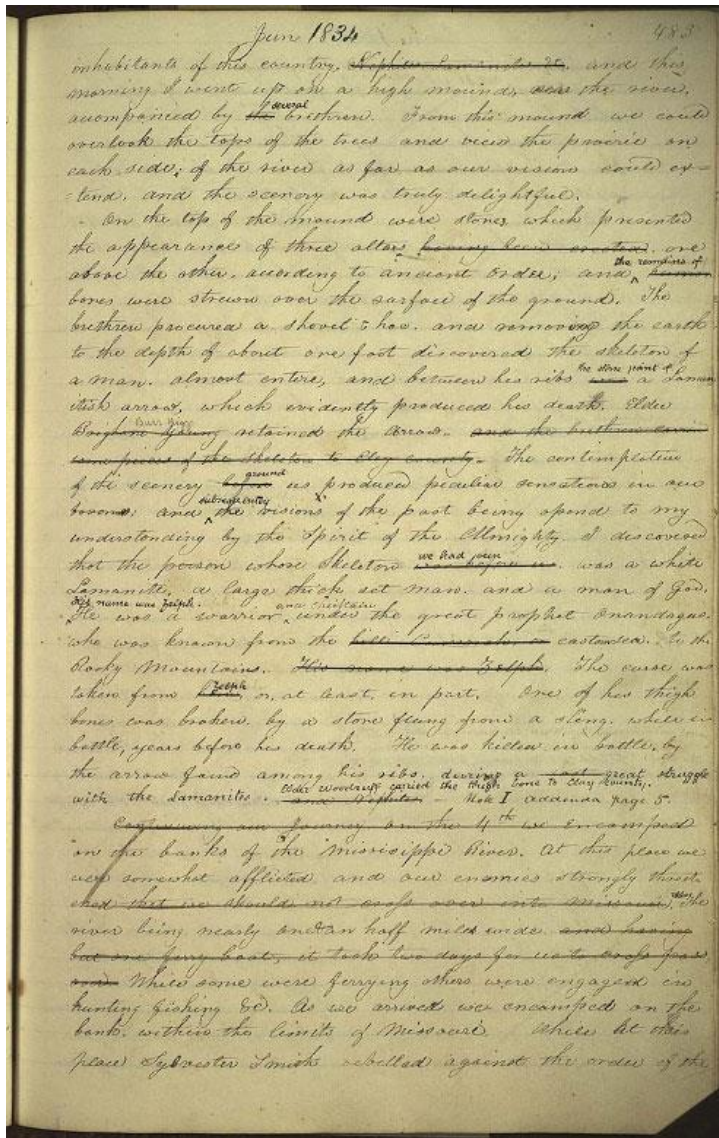 June 1834 483
inhabitants of this country, Nephites Lamanites &c. and this
morning I went up on a high mound, near the river,
accompanied by the several brethren. From this mound we could
overlook the tops of the trees and view the prairie on
each side, of the river as far as our vision could ex=
=tend, and the scenery was truly delightful.
On the top of the mound were stones which presented
the appearance of three altars having been erected, one
above the other, according to ancient order, and the remains of human
bones were strewn over the surface of the ground. The
brethren procured a shovel & hoe, and removing the earth
to the depth of about one foot discovered the skeleton of
a man, almost entire, and between his ribs the stone point of a Laman
itish arrow, which evidently produced his death. Elder
Brigham Young Burr Riggs retained the arrow. and the brethren carried
some pieces of the Skeleton to Clay county. The contemplation
of the scenery before around us produced peculiar sensations in our
bosoms: and subsequently the visions of the past being opend to my
understanding by the Spirit of the Almighty I discovered
that the person whose Skeleton was before us we had seen was a white
Lamanite, a large thick set man, and a man of God.
His name was Zelph.
He was a warrior and chieftain under the great prophet Onandagus,
who was known from the hill Cumorah or eastern sea, to the
Rocky Mountains. His name was Zelph. The curse was
taken from Zelph, or, at least, in part. One of his thigh
bones was broken, by a stone flung from a sling, while in
battle, years before his death. He was killed in battle, by
the arrow found among his ribs, during a last great struggle
with the Lamanites. and Nephites Elder Woodruff carried the thigh bone to Clay County. Note I addenda page 5.
Continuing our Journey on the 4th we encamped
on the banks of the Mississippi River. At this place we
were somewhat afflicted and our enemies strongly threat
ened that we should not cross over into Missouri. The
river being nearly one & an half miles wide and having
but one ferry boat, it took two days for us to cross
While some were ferrying others were engaged in
hunting fishing &c. As we arrived we encamped on the
bank, within the limits of Missouri. While at this
place Sylvester Smith rebelled against the order of the